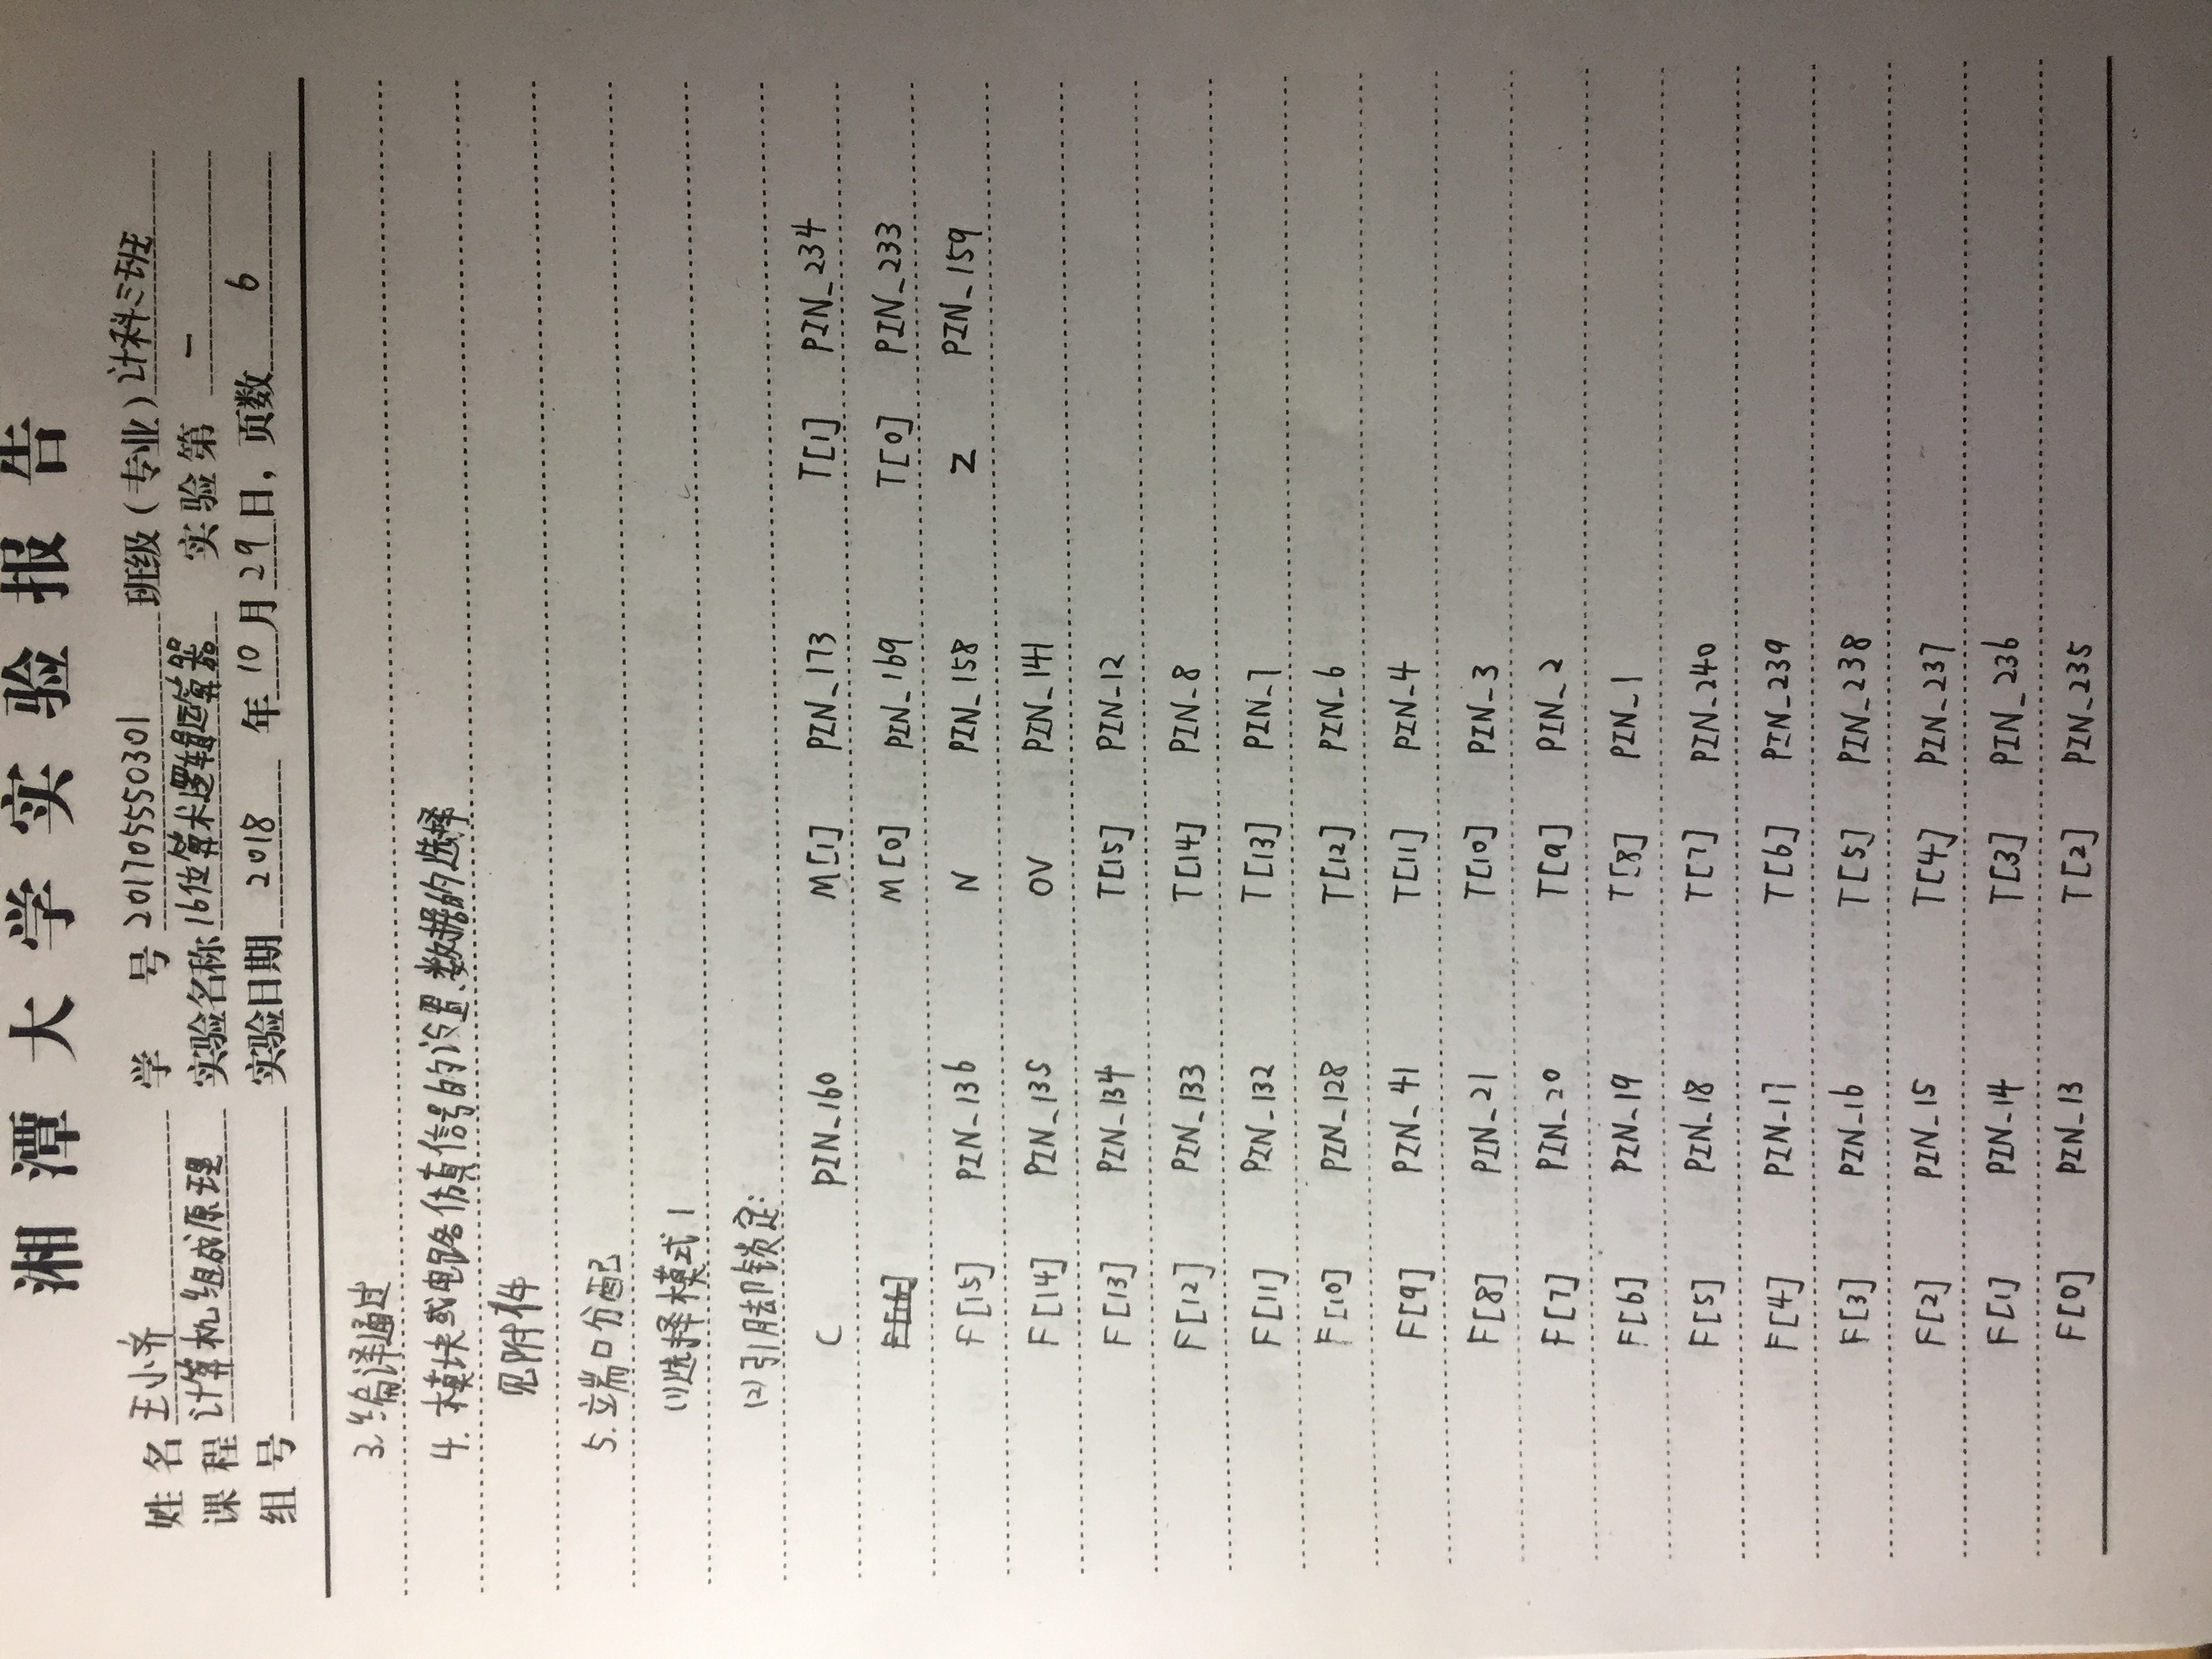 湘潭大学实验报告
姓名 王小齐 学号 201705550301 班级(专业) 计科三班
课程 计算机组成原理 实验名称 16位算术逻辑运算器 实验第 二
组号 实验日期 2018 年 10 月 29 日, 页数 6
3.编译通过
4.模块或电路仿真信号的设置、数据的选择
见附件
5.端口分配
(1)选择模式1
(2)引脚锁定:
C PIN_160 M[1] PIN_173 T[1] PIN_234
F[16] M[0] PIN_169 T[0] PIN_233
F[15] PIN_136 N PIN_158 Z PIN_159
F[14] PIN_135 OV PIN_141
F[13] PIN_134 T[15] PIN_12
F[12] PIN_133 T[14] PIN_8
F[11] PIN_132 T[13] PIN_7
F[10] PIN_128 T[12] PIN_6
F[9] PIN_41 T[11] PIN_4
F[8] PIN_21 T[10] PIN_3
F[7] PIN_20 T[9] PIN_2
F[6] PIN_19 T[8] PIN_1
F[5] PIN_18 T[7] PIN_240
F[4] PIN_17 T[6] PIN_239
F[3] PIN_16 T[5] PIN_238
F[2] PIN_15 T[4] PIN_237
F[1] PIN_14 T[3] PIN_236
F[0] PIN_13 T[2] PIN_235